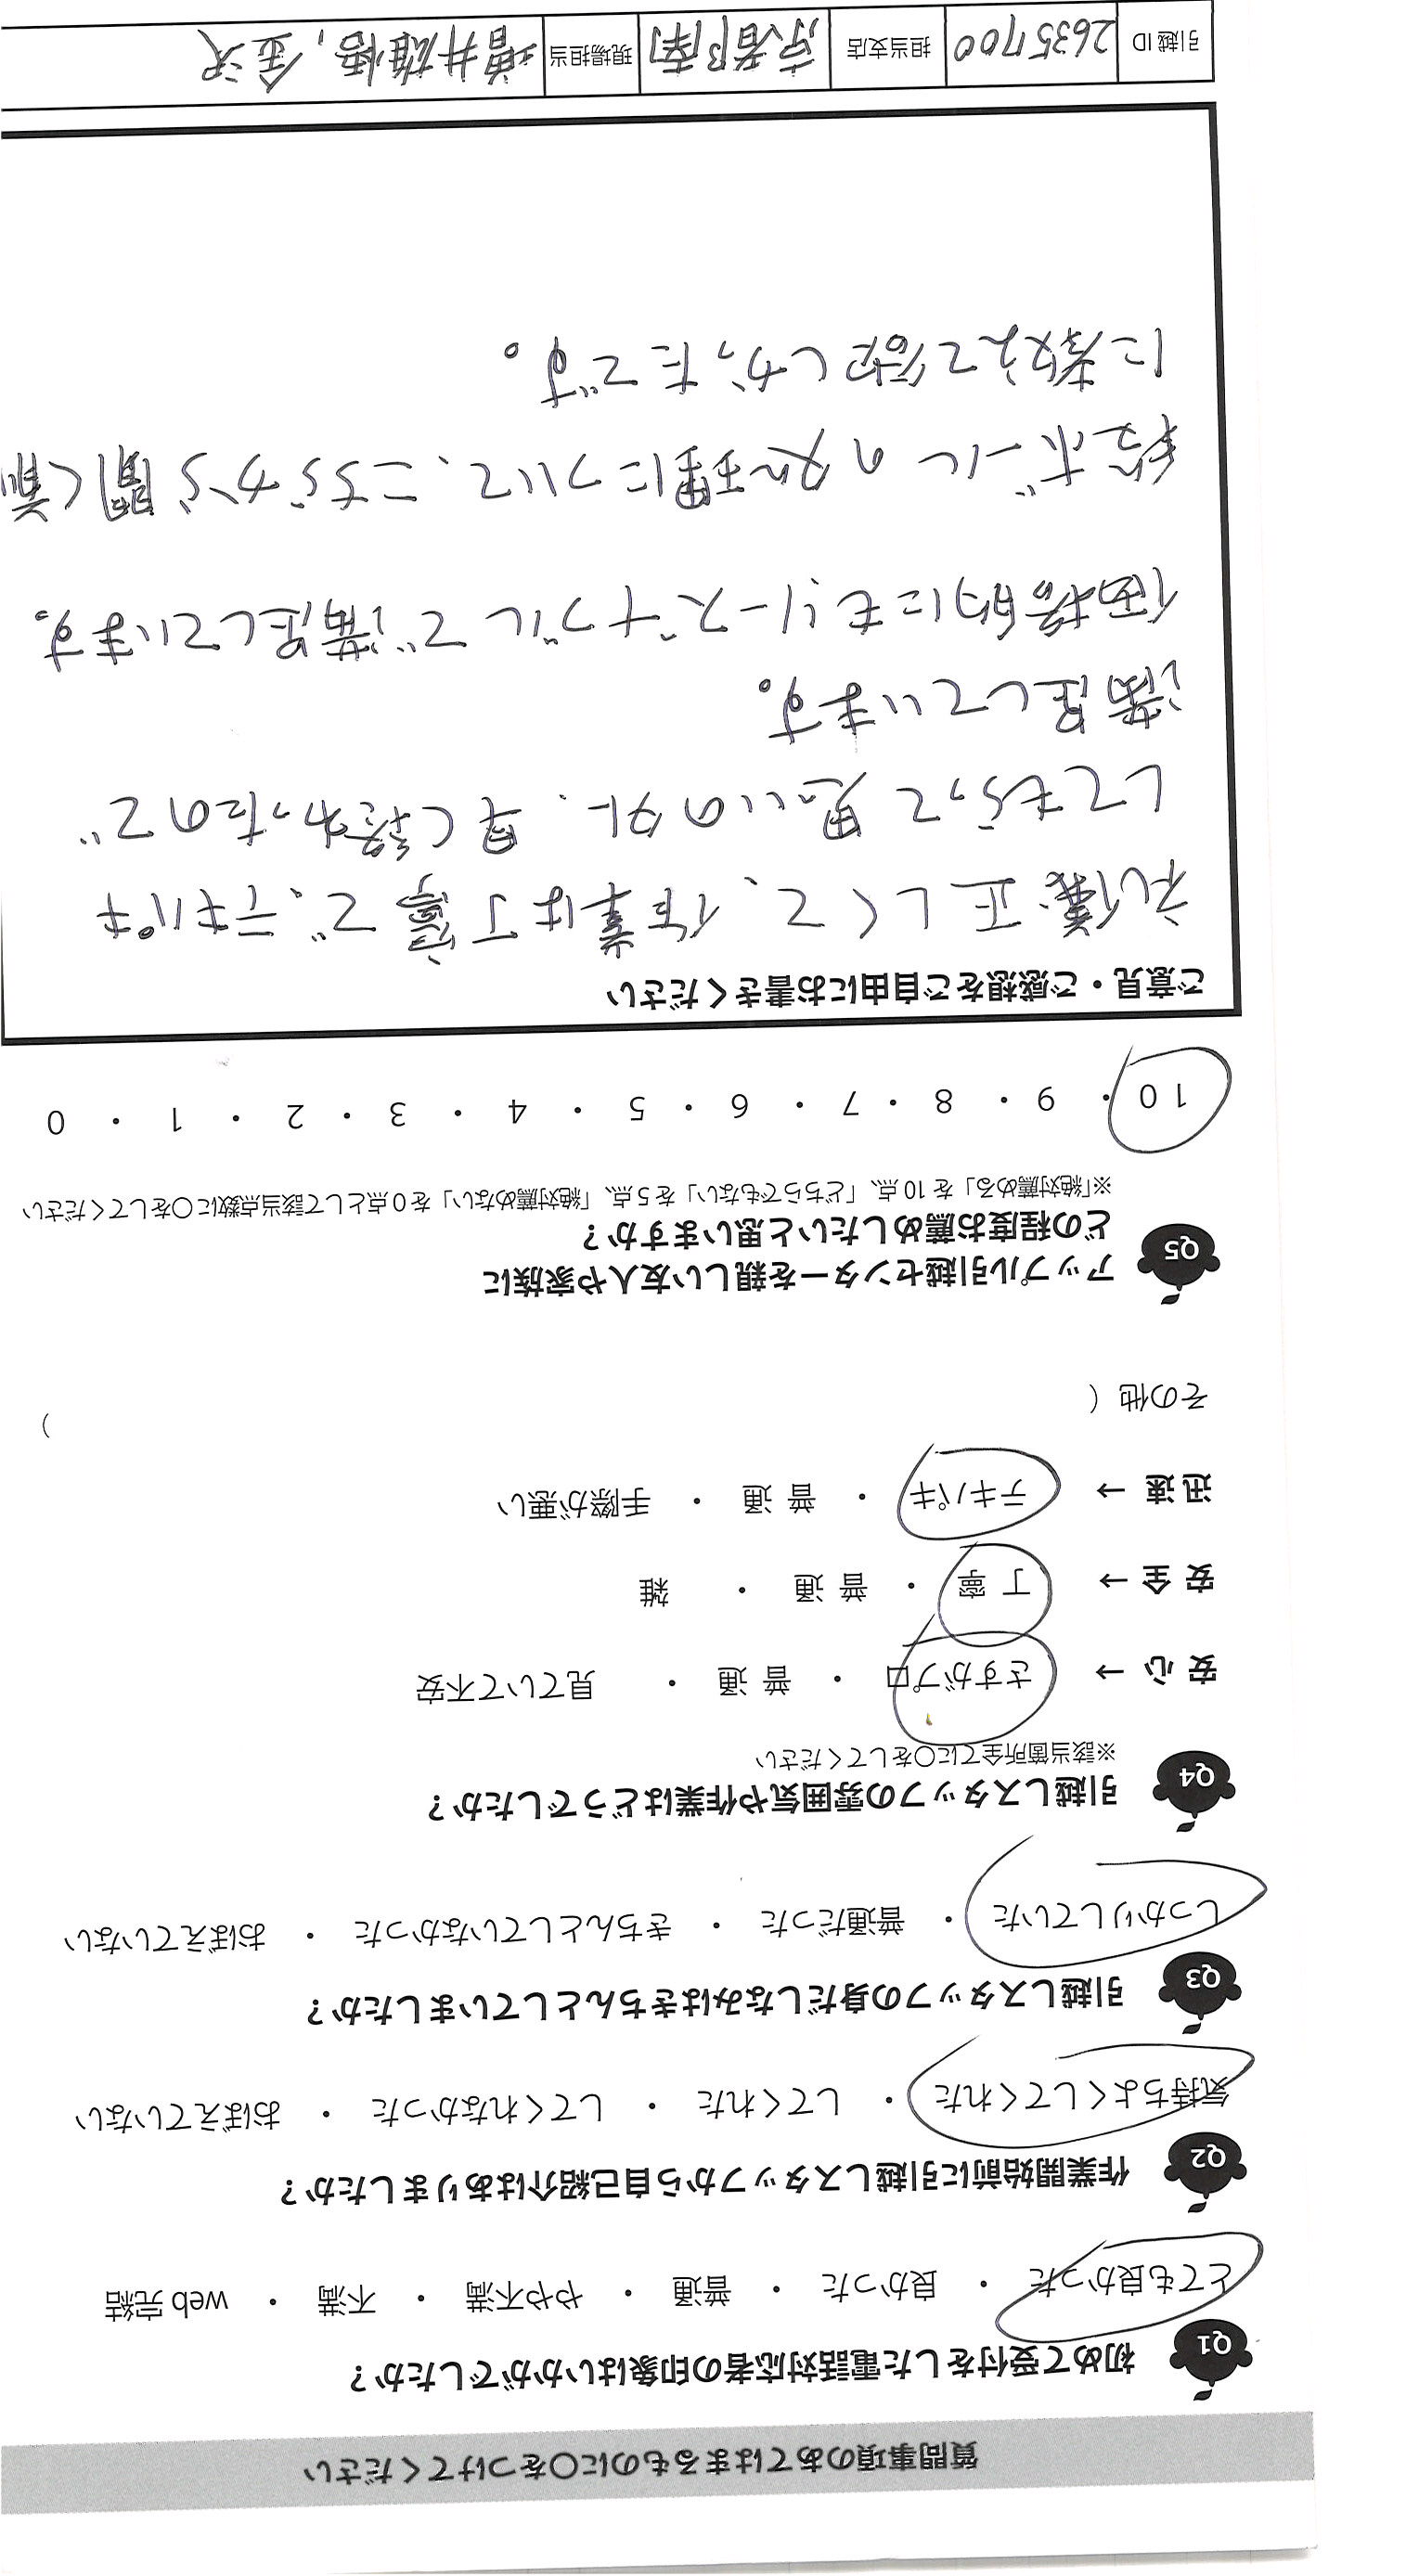 質問事項のあてはまるものに〇をつけてください
Q1 初めて受付をした電話対応者の印象はいかがでしたか？
とても良かった ・ 良かった ・ 普通 ・ やや不満 ・ 不満 ・ web完結
Q2 作業開始前に引越しスタッフから自己紹介はありましたか？
気持ちよくしてくれた ・ してくれた ・ してくれなかった ・ おぼえていない
Q3 引越しスタッフの身だしなみはきちんとしていましたか？
しっかりしていた ・ 普通だった ・ きちんとしていなかった ・ おぼえていない
Q4 引越しスタッフの雰囲気や作業はどうでしたか？
※該当箇所全てに〇をしてください
安心→ さすがプロ ・ 普通 ・ 見ていて不安
安全→ 丁寧 ・ 普通 ・ 雑
迅速→ テキパキ ・ 普通 ・ 手際が悪い
その他（ ）
Q5 アップル引越センターを親しい友人や家族に
どの程度お薦めしたいと思いますか？
※「絶対薦める」を10点、「どちらでもない」を5点、「絶対薦めない」を0点として該当点数に〇をしてください
10 ・ 9 ・ 8 ・ 7 ・ 6 ・ 5 ・ 4 ・ 3 ・ 2 ・ 1 ・ 0
ご意見・ご感想をご自由にお書きください
礼儀正しくて、作業は丁寧で、テキパキ
してもらって思いの外、早く終わったので
満足しています。
価格的にもリーズナブルで満足しています。
段ボールの処理について、こちらから聞く前
に教えて欲しかったです。
引越ID 2635700 担当支店 京都南 現場担当 増井雄悟, 金沢